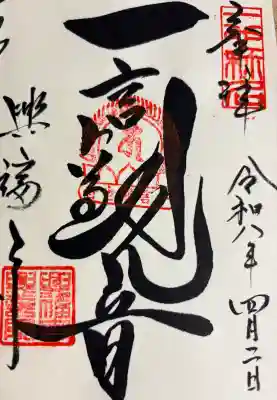 奉拝
令和八年四月二日
一言観音
興福寺